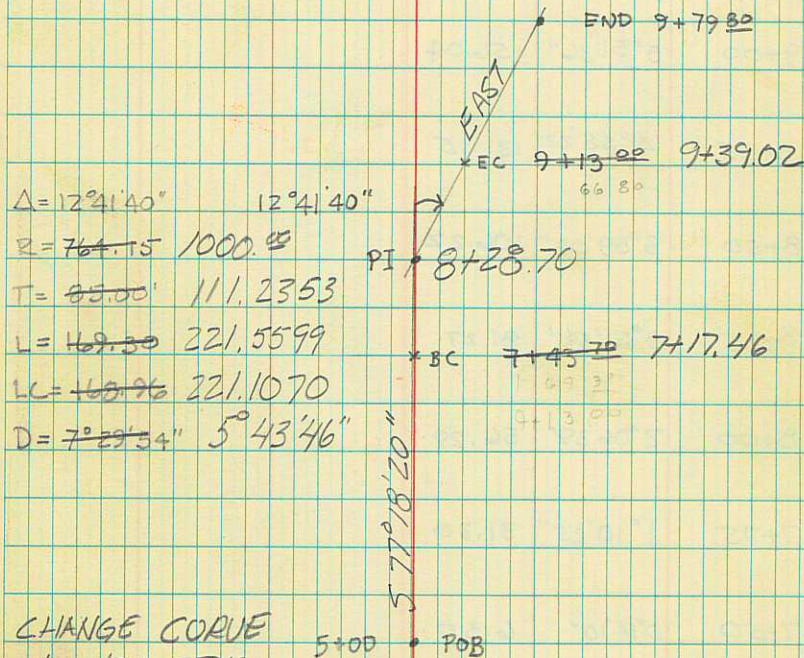 END 9+79 80
EAST
EC 9+13 00 9+39.02
66 80
Δ= 12°41'40" 12°41'40"
R= 764.15 1000.00
PI 8+28.70
T= 85.00' 111.2353
L= 169.30 221.5599
BC 7+43 70 7+17.46
69 30
LC= 168.96 221.1070
9+13 00
D= 7°29'54" 5°43'46"
S 77°18'20"
CHANGE CORVE
5+00 POB